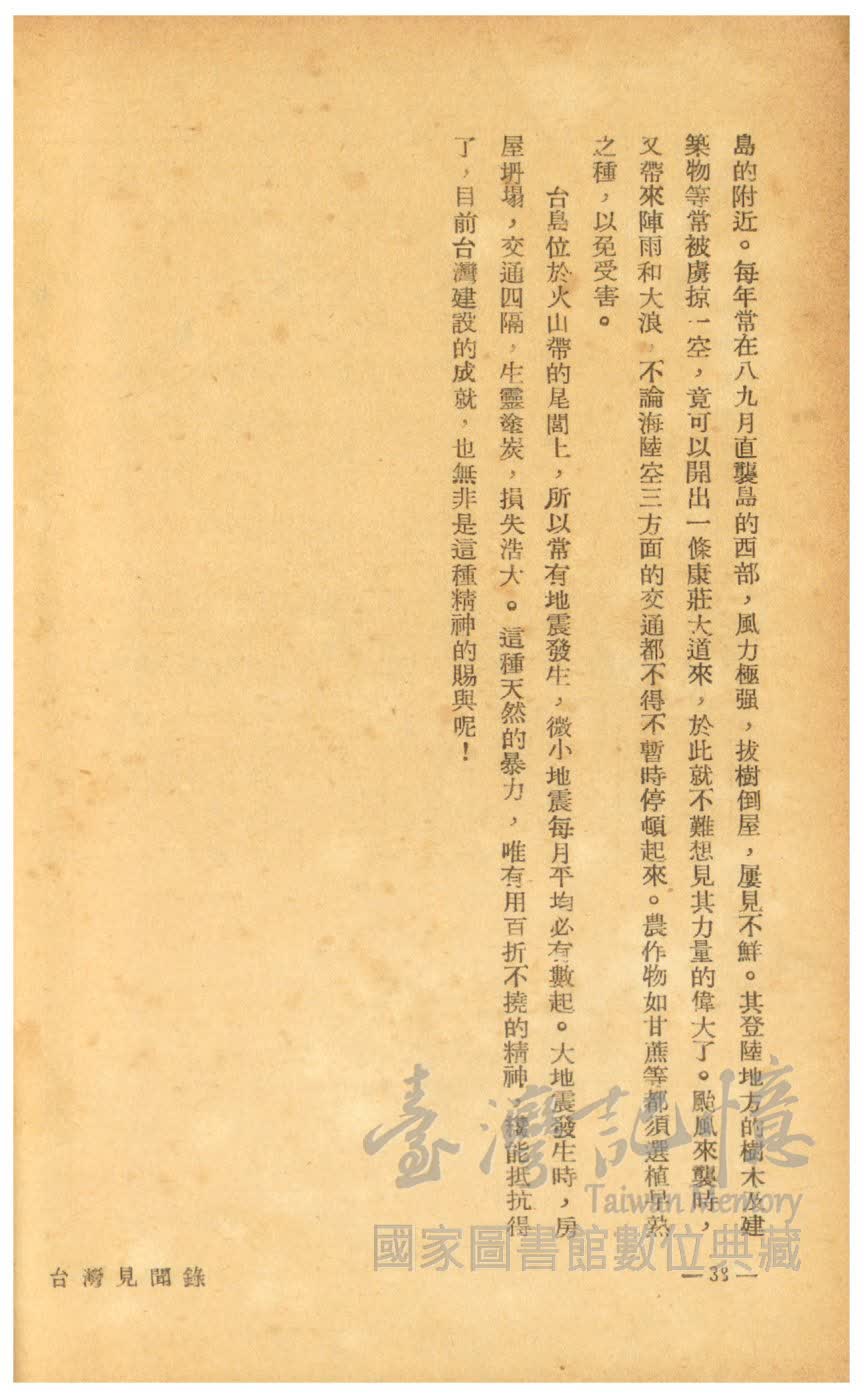 島的附近。每年常在八九月直襲島的西部，風力極强，拔樹倒屋，屢見不鮮。其登陸地方的樹木及建
築物等常被虜掠一空，竟可以開出一條康莊大道來，於此就不難想見其力量的偉大了。颱風來襲時，
又帶來陣雨和大浪，不論海陸空三方面的交通都不得不暫時停頓起來。農作物如甘蔗等都須選植早熟
之種，以免受害。
台島位於火山帶的尾閭上，所以常有地震發生，微小地震每月平均必有數起。大地震發生時，房
屋坍塌，交通四隔，生靈塗炭，損失浩大。這種天然的暴力，唯有用百折不撓的精神，纔能抵抗得
了，目前台灣建設的成就，也無非是這種精神的賜與呢！
臺灣記憶
Taiwan Memory
國家圖書館數位典藏
台灣見聞錄